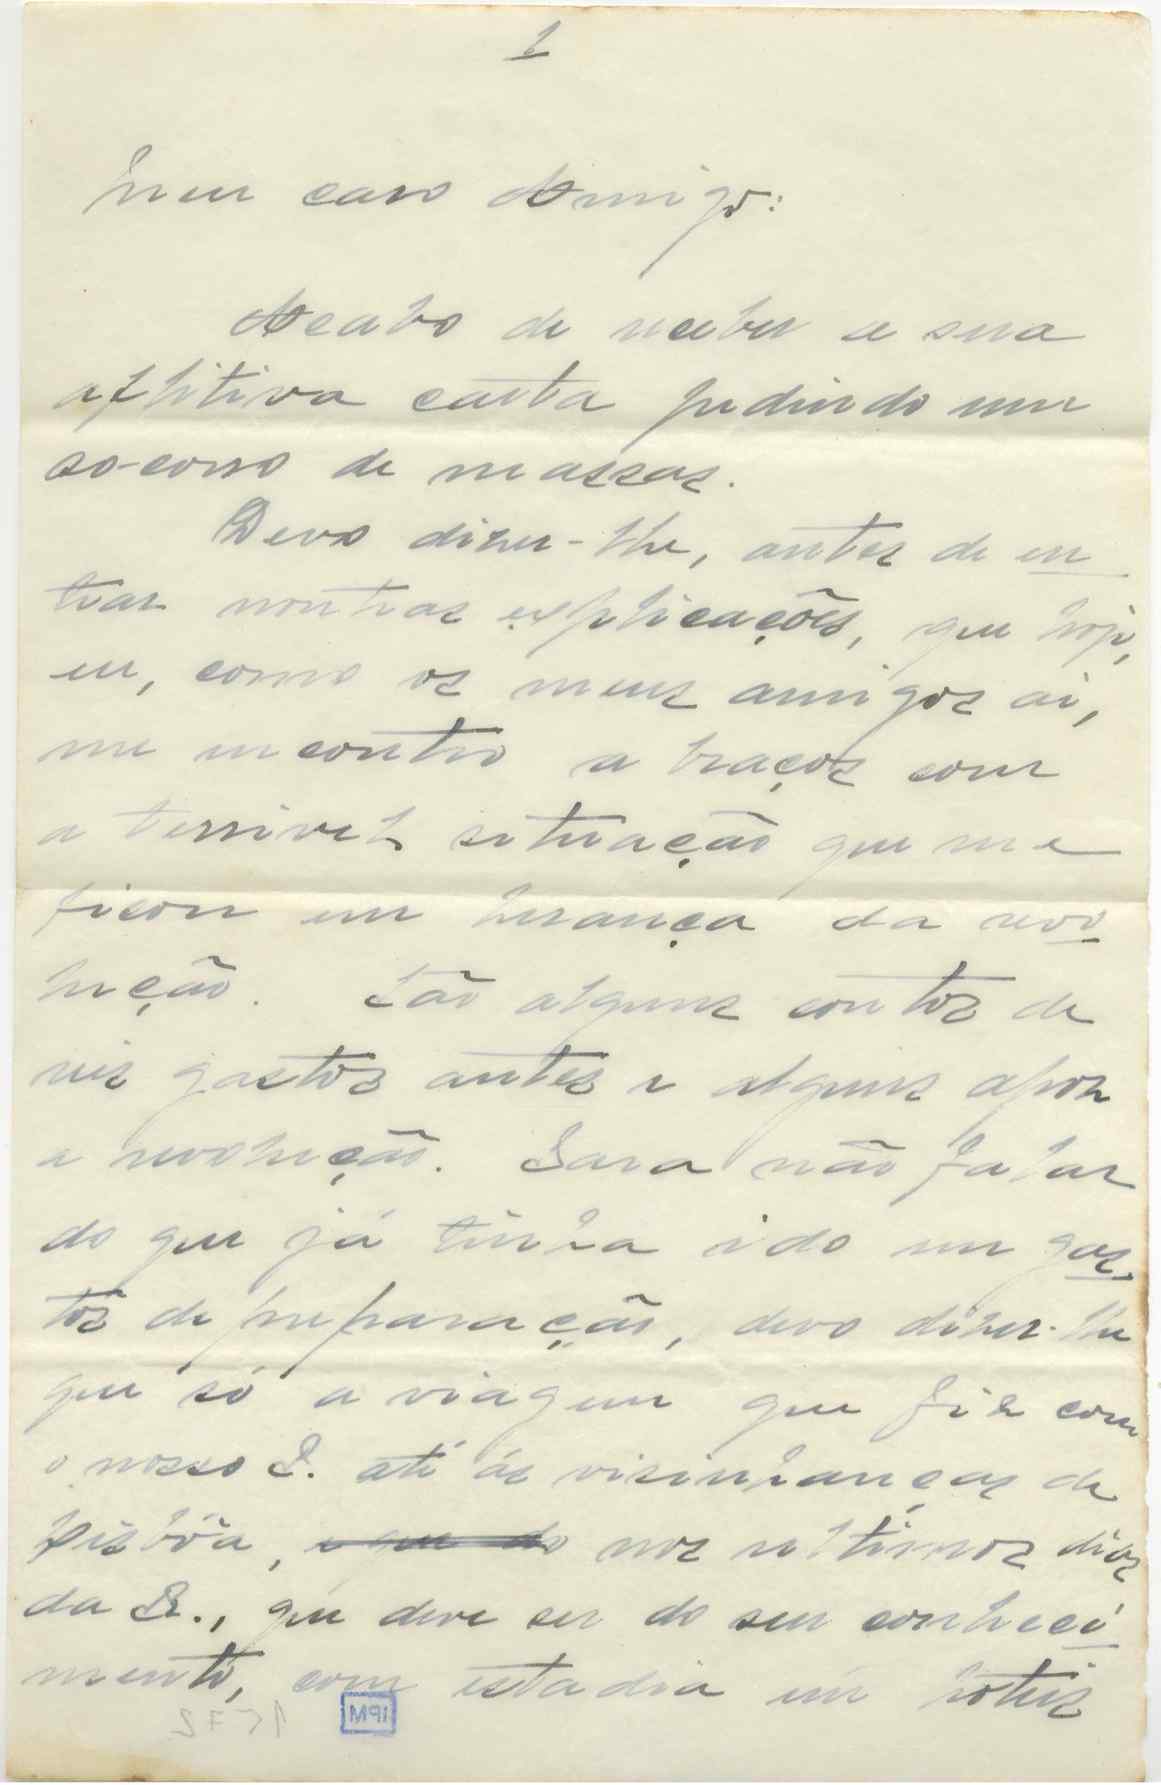 1
Meu caro Amigo:
Acabo de receber a sua
aflitiva carta pedindo um
so-corro de massas.
Devo dizer-lhe, antes de en
trar noutras explicações, que hoje,
eu, como os meus amigos ai,
me encontro a braços com
a terrivel situação que me
ficou em herança da revo
lução. São alguns contos de
reis gastos antes e alguns apoz
a revolução. Para não falar
do que já tinha ido em gas
tos de preparação, devo dizer-lhe
que só a viagem que fiz com
o nosso I. até ás visinhanças de
Lisbôa, e que do nos ultimos dias
da R., que deve ser do seu conheci
mento, com estadia em hoteis
IPM